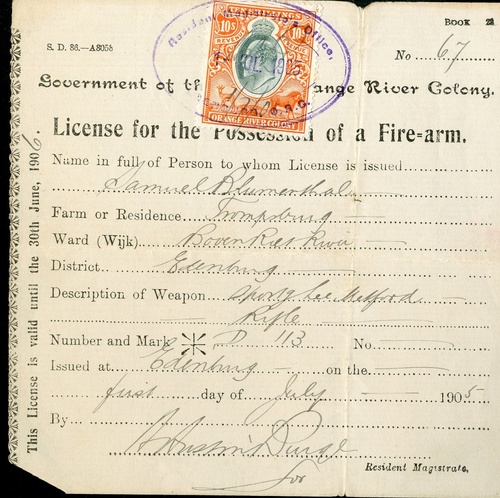 BOOK 22
S. D. 86.—A3058
No 67
Resident Magistrate's Office,
10s
REVENUE
10s
ORANGE RIVER COLONY
Government of th ange River Colony.
License for the Possession of a Fire=arm.
Name in full of Person to whom License is issued
Samuel Blumenthal
Farm or Residence Trompsburg
Ward (Wijk) Boven Riet
District Edenburg
Description of Weapon Sport Lee Metford
Rifle
Number and Mark D 113 No.
Issued at Edenburg on the
first day of July 1905
By
for
Resident Magistrate.
This License is valid until the 30th June, 1906.